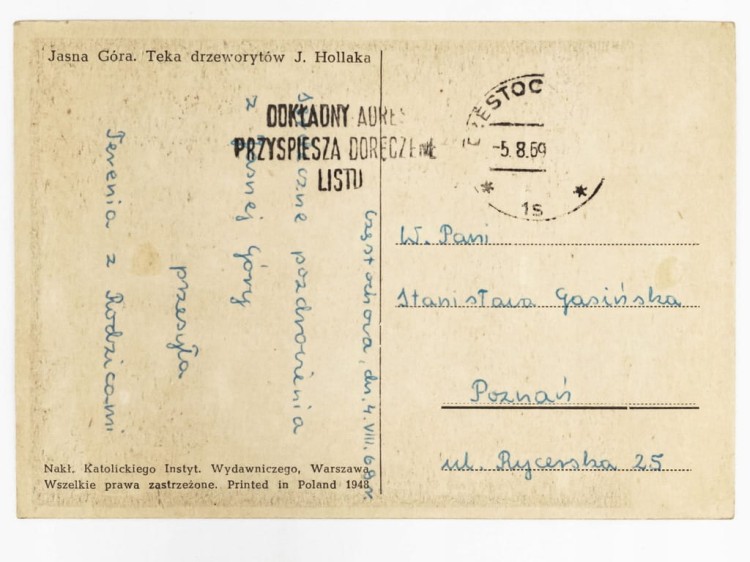 Jasna Góra. Teka drzeworytów J. Hollaka
DOKŁADNY ADRES
PRZYSPIESZA DORĘCZENIE
LISTU
CZĘSTOC
-5.8.69
* 1S *
Częstochowa, dn. 4. VIII. 68 r.
Serdeczne pozdrowienia
z Jasnej Góry
przesyła
Terenia z Rodzicami
W. Pani
Stanisława Gasińska
Poznań
ul. Rycerska 25
Nakł. Katolickiego Instyt. Wydawniczego, Warszawa
Wszelkie prawa zastrzeżone. Printed in Poland 1948